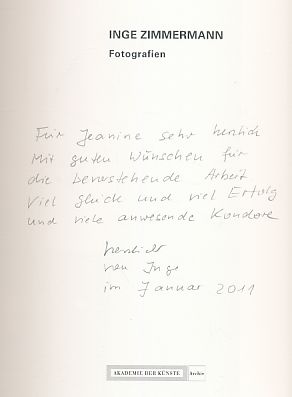 INGE ZIMMERMANN
Fotografien
Für Jeanine sehr herzlich
Mit guten Wünschen für
die bevorstehende Arbeit
Viel Glück und viel Erfolg
und viele anwesende Kondore
herzlich
von Inge
im Januar 2011
AKADEMIE DER KÜNSTE Archiv